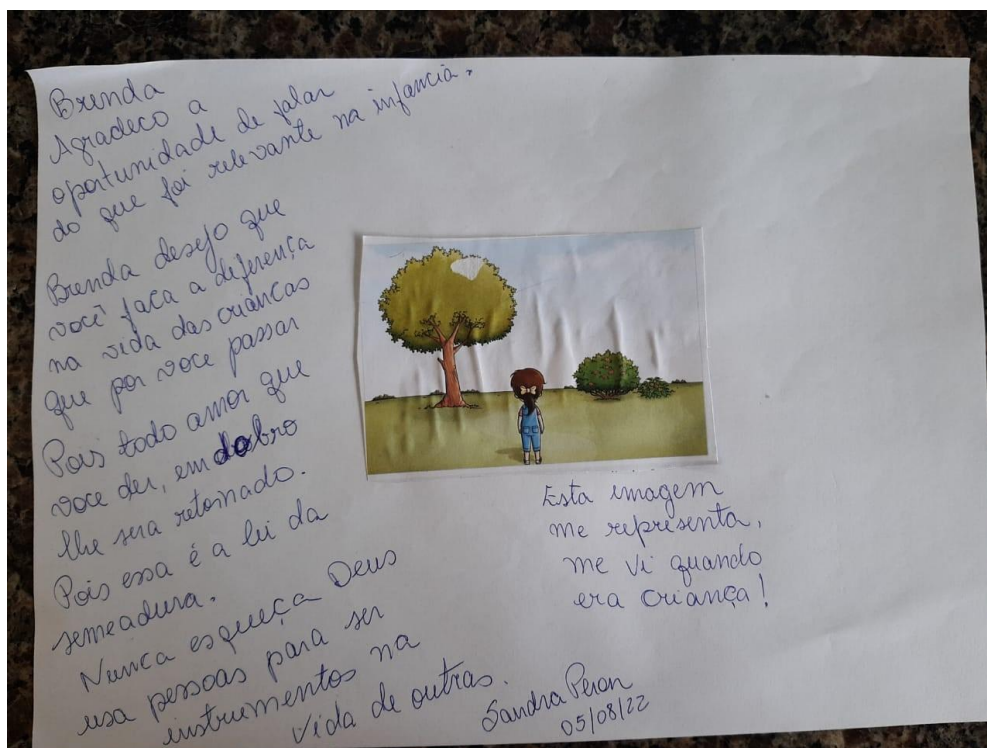 Brenda
Agradeco a
oportunidade de falar
do que foi relevante na infancia.
Brenda desejo que
você faca a diferença
na vida das criancas
que por voce passar
Pois todo amor que
voce der, em dobro
lhe sera retornado.
Pois essa é a lei da
semeadura.
Nunca esqueça Deus
usa pessoas para ser
instrumentos na
vida de outras.
Esta imagem
me representa,
me vi quando
era criança!
Sandra Peron
05/08/22